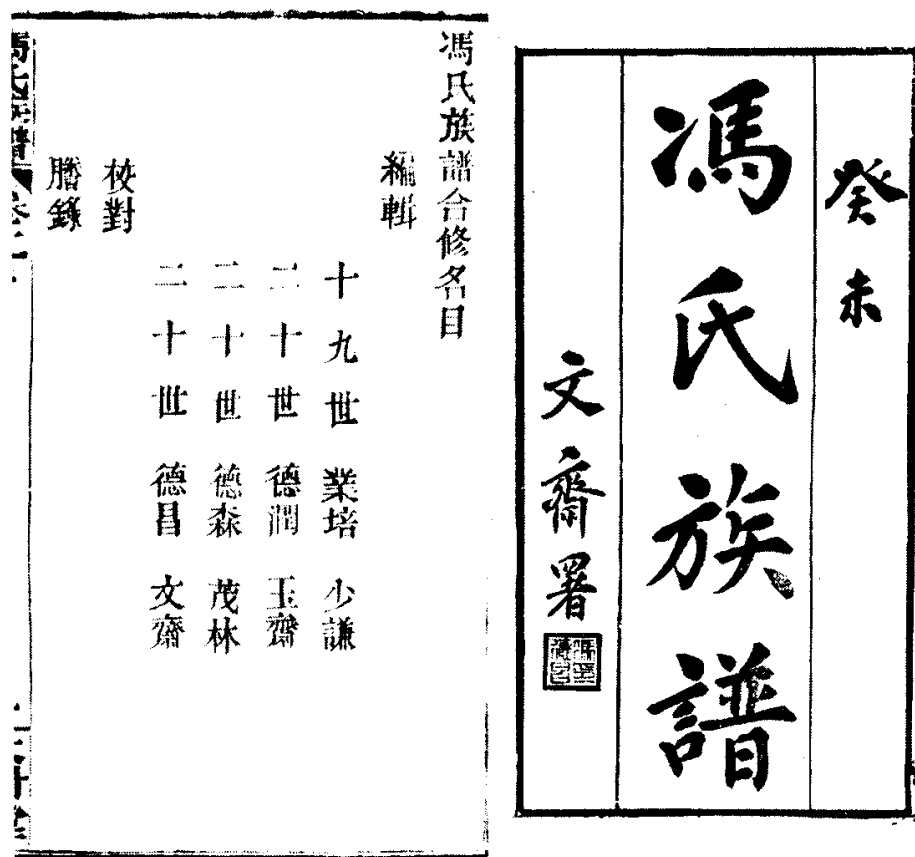 癸未
馮氏族譜
文齋署
馮氏族譜合修名目
編輯
十九世 業培 少謙
二十世 德潤 玉齋
二十世 德森 茂林
二十世 德昌 文齋
校對
謄錄
馮氏族譜 卷之